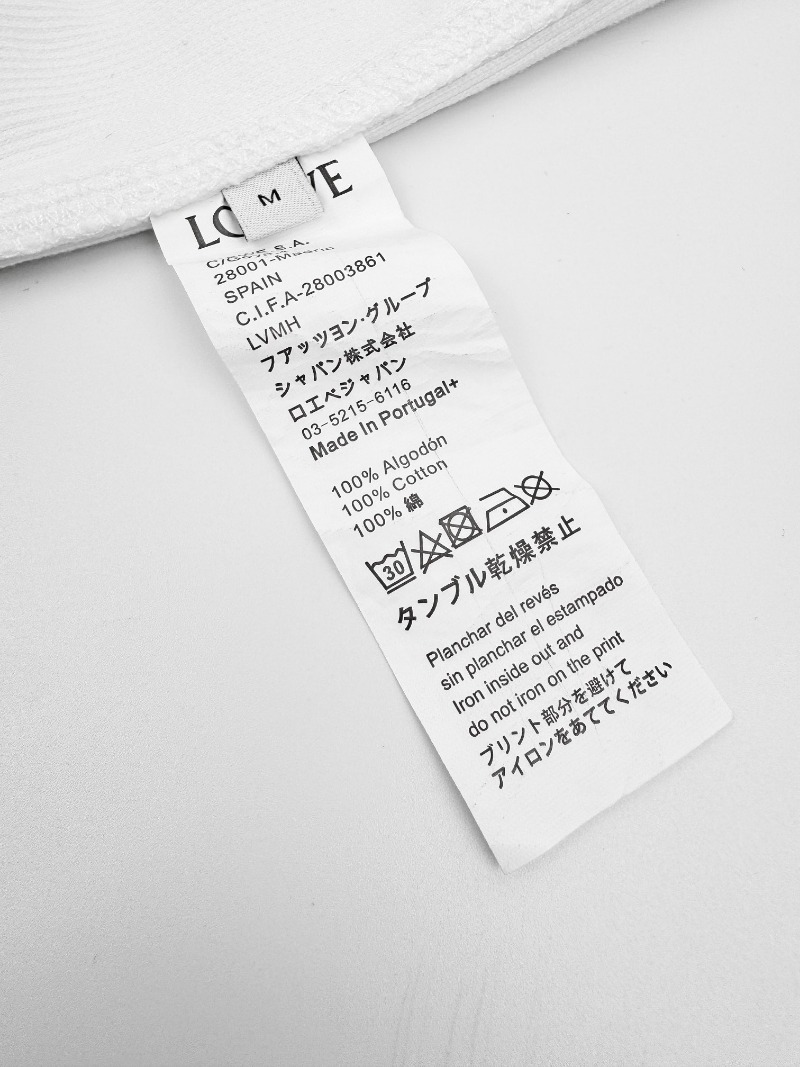 M
LO VE
C/GOYE S.A.
28001-Madrid
SPAIN
C.I.F.A-28003861
LVMH
フアッツヨン·グループ
シャパン株式会社
ロエベジャパン
03-5215-6116
Made In Portugal+
100% Algodón
100% Cotton
100% 綿
30
タンブル乾燥禁止
Planchar del revés
sin planchar el estampado
Iron inside out and
do not iron on the print
プリント部分を避けて
アイロンをあててください